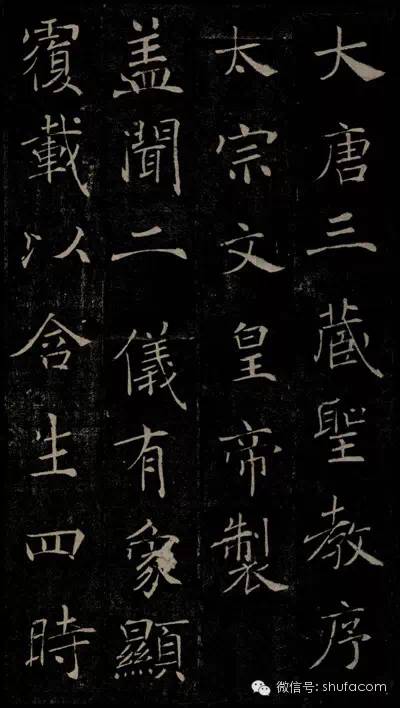 大唐三藏聖教序
太宗文皇帝製
盖聞二儀有象顯
覆載以含生四時
微信号: shufacom